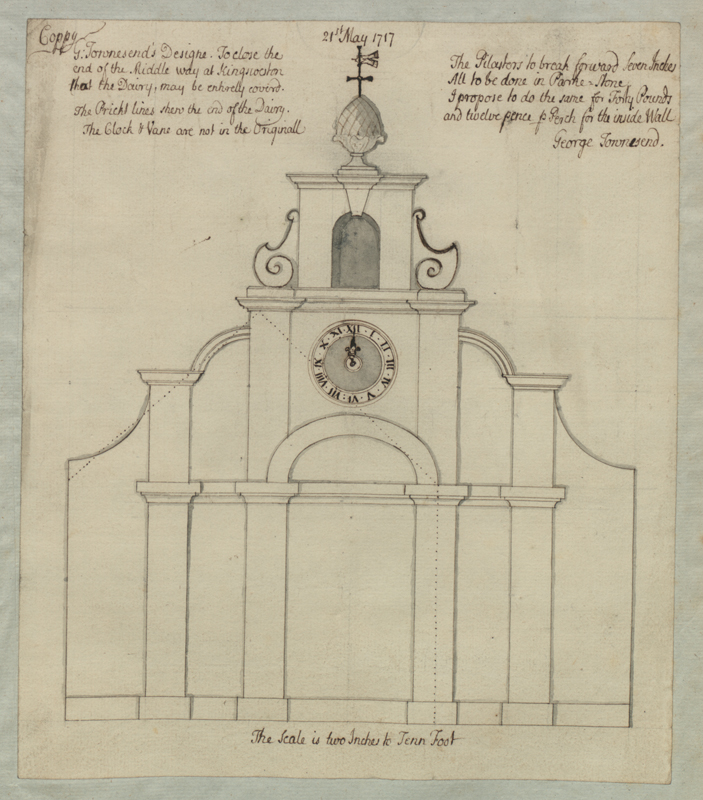 Coppy
21st May 1717
G. Townesend's Designe. To close the
end of the Middle way at Kingweston
that the Dairy, may be entirely coverd.
The Prickt lines shew the end of the Dairy.
The Clock & Vane are not in the Originall
The Pilasters to break forward Seven Inches
All to be done in Parke-Stone
I propose to do the same for Forty Pounds
and twelve pence p Perch for the inside Wall
George Townesend.
XII I II III IV V VI VII VIII IX X XI
The Scale is two Inches to Tenn Foot